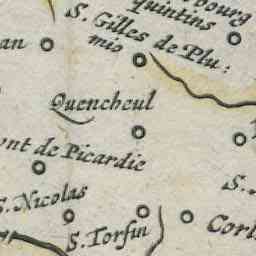 bourg
quintins
S. Gilles de Plu:
mio
an
Quencheul
ont de Picardie
S.
S. Nicolas
S. Torfin
Corl